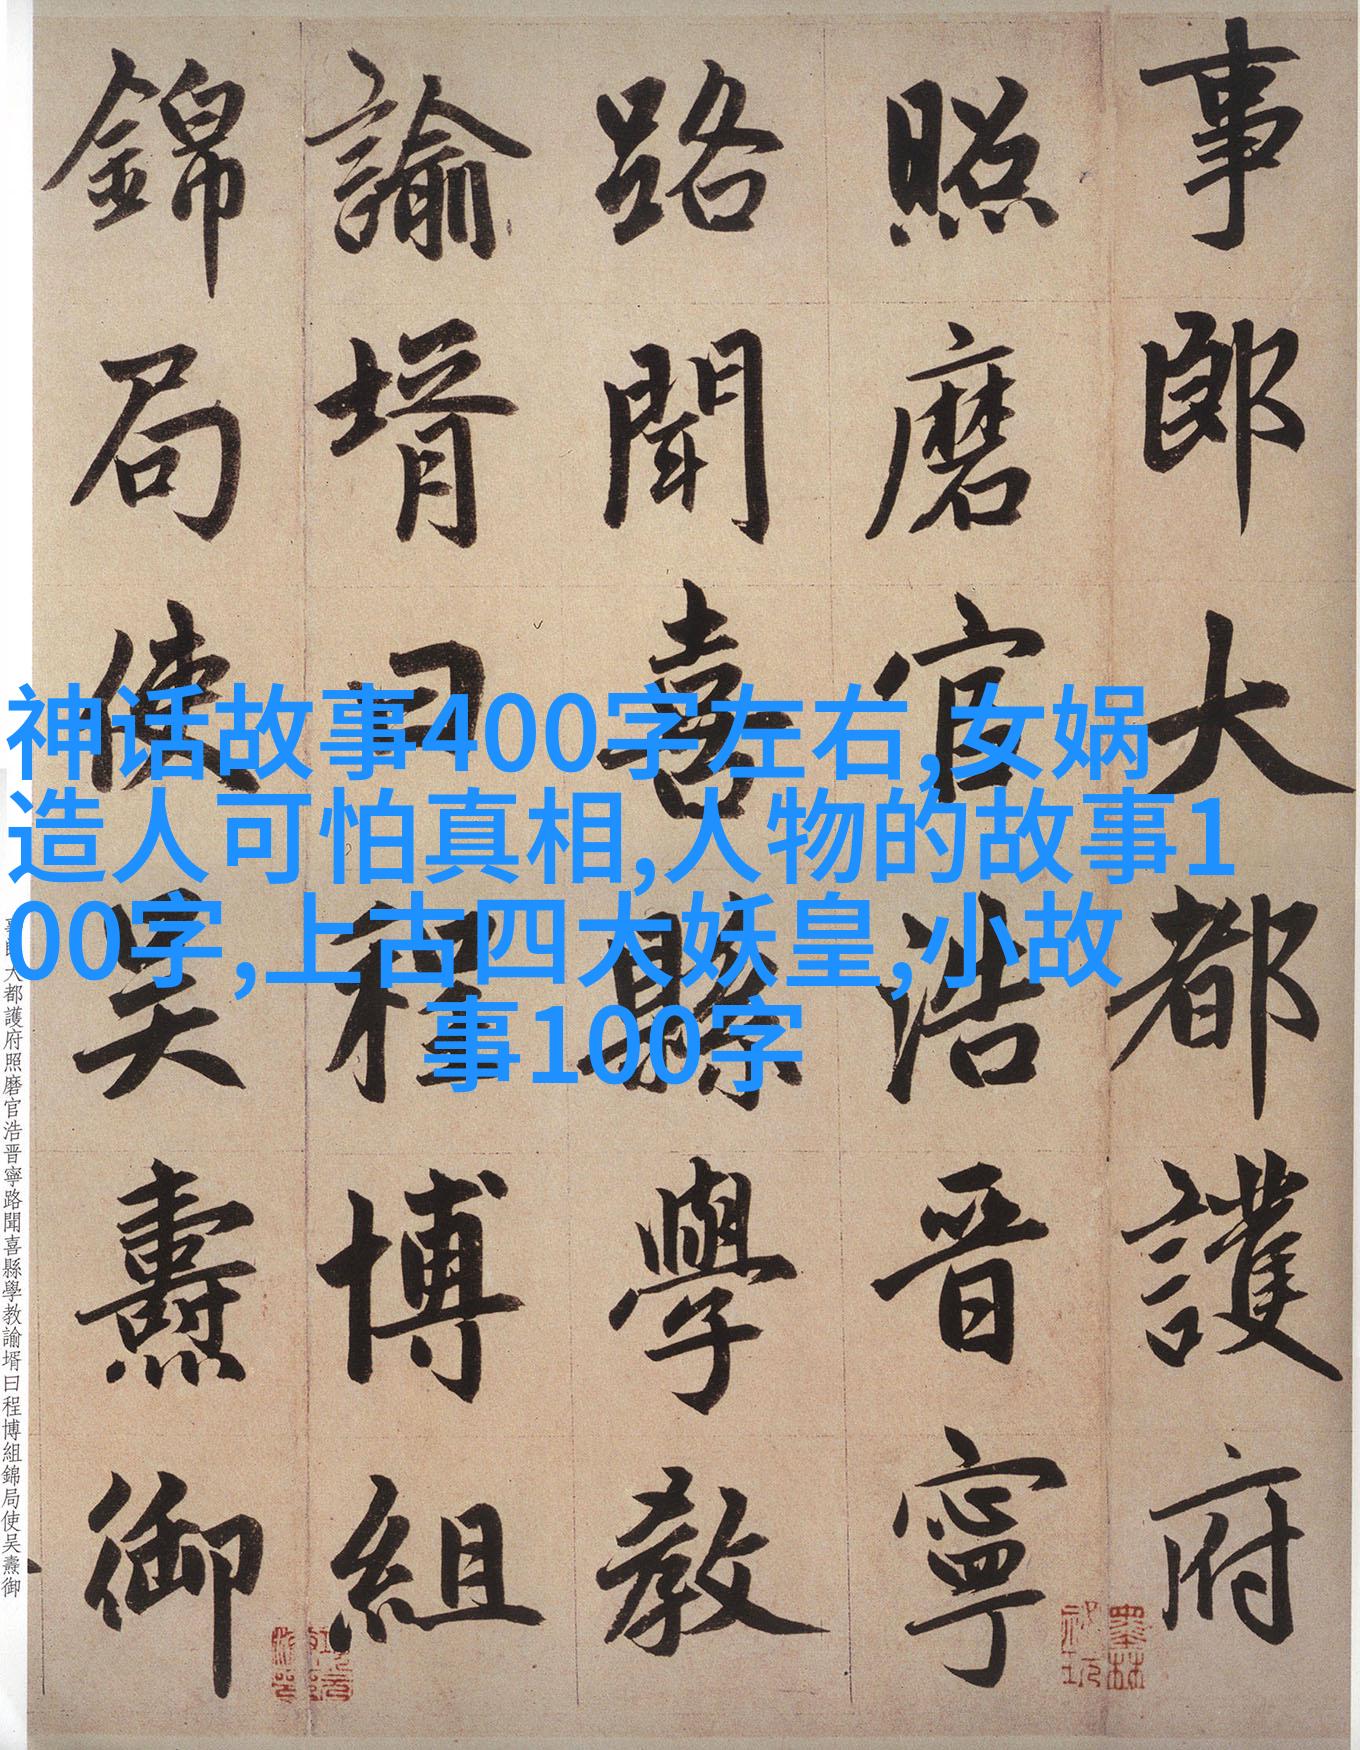 事郎大都護府
照磨官浩晋寧
路聞喜縣學教
諭壻曰程博組
錦局使吴燾御
神话故事400字左右,女娲
造人可怕真相,人物的故事1
00字,上古四大妖皇,小故
事100字
事郎大都護府照磨官浩晋寧路聞喜縣學教諭壻曰程博組錦局使吴燾御